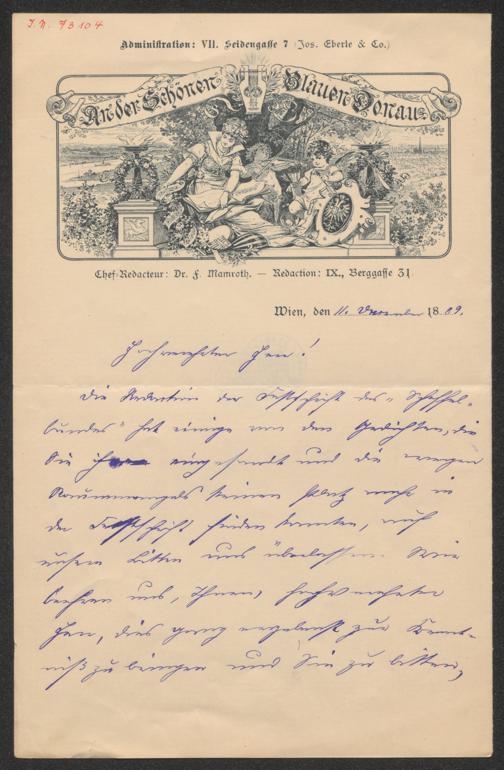 J. N. 73104
Administration: VII. Seidengasse 7 (Jos. Eberle & Co.)
An der Schönen Blauen Donau
Chef-Redacteur: Dr. F. Mamroth. — Redaction: IX., Berggasse 31
Wien, den 11. December 1889.
Hochverehrter Herr!
Die Redaction der Festschrift des "Scheffel-
bundes" hat einige von den Gedichten, die
Sie ihr eingesandt und die wegen
Raummangels keinen Platz mehr in
der Festschrift finden konnten, auf
unsere Bitten uns überlassen. Wir
beehren uns, Ihnen, hochverehrter
Herr, dies ganz ergebenst zur Kennt-
niß zu bringen und Sie zu bitten,